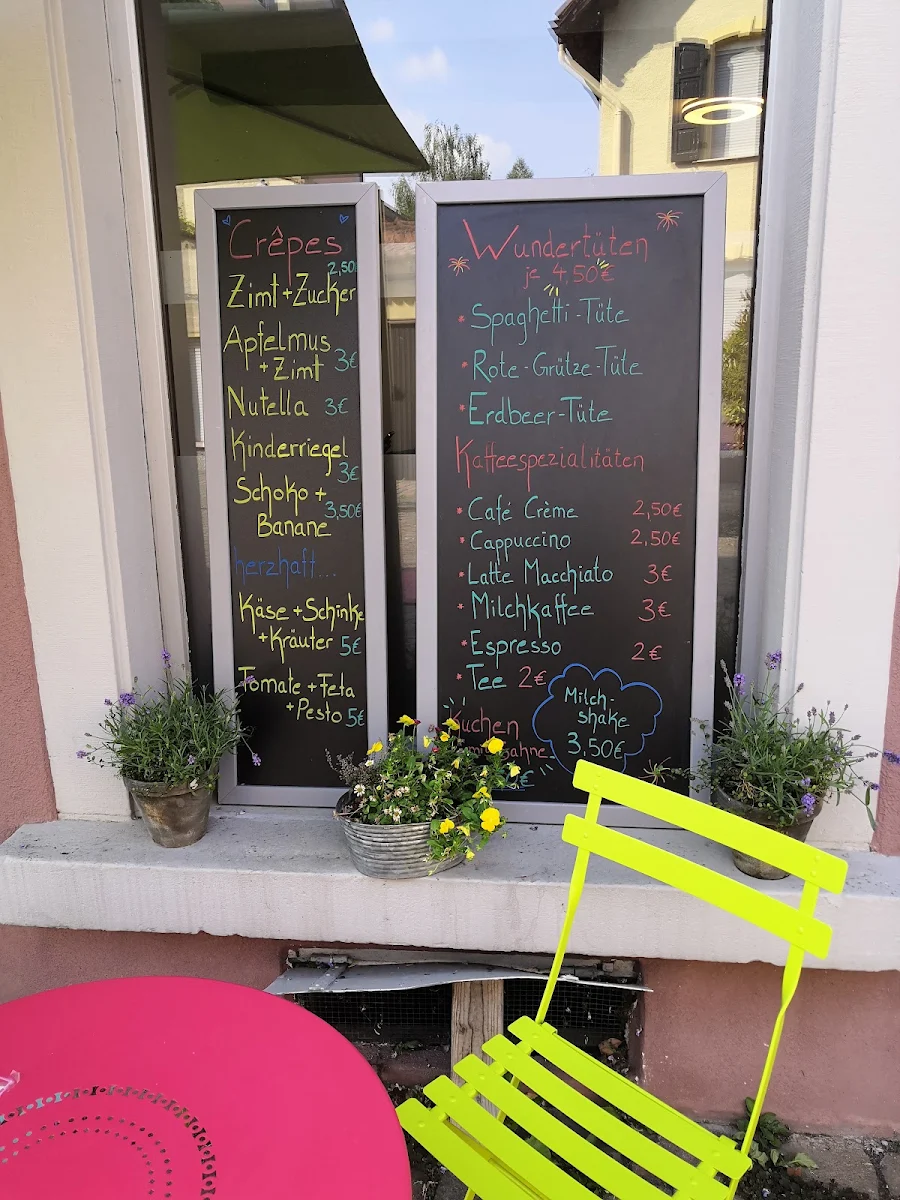 Crêpes
2,50
Zimt + Zucker
Apfelmus
+ Zimt 3€
Nutella 3€
Kinderriegel
3€
Schoko +
3,50€
Banane
herzhaft...
Käse + Schinke
+ Kräuter 5€
Tomate + Feta
+ Pesto 5€
Wundertüten
je 4,50€
* Spaghetti-Tüte
* Rote-Grütze-Tüte
* Erdbeer-Tüte
Kaffeespezialitäten
* Café Crème 2,50€
* Cappuccino 2,50€
* Latte Macchiato 3€
* Milchkaffee 3€
* Espresso 2€
* Tee 2€
Milch-
shake
3,50€
Kuchen
€